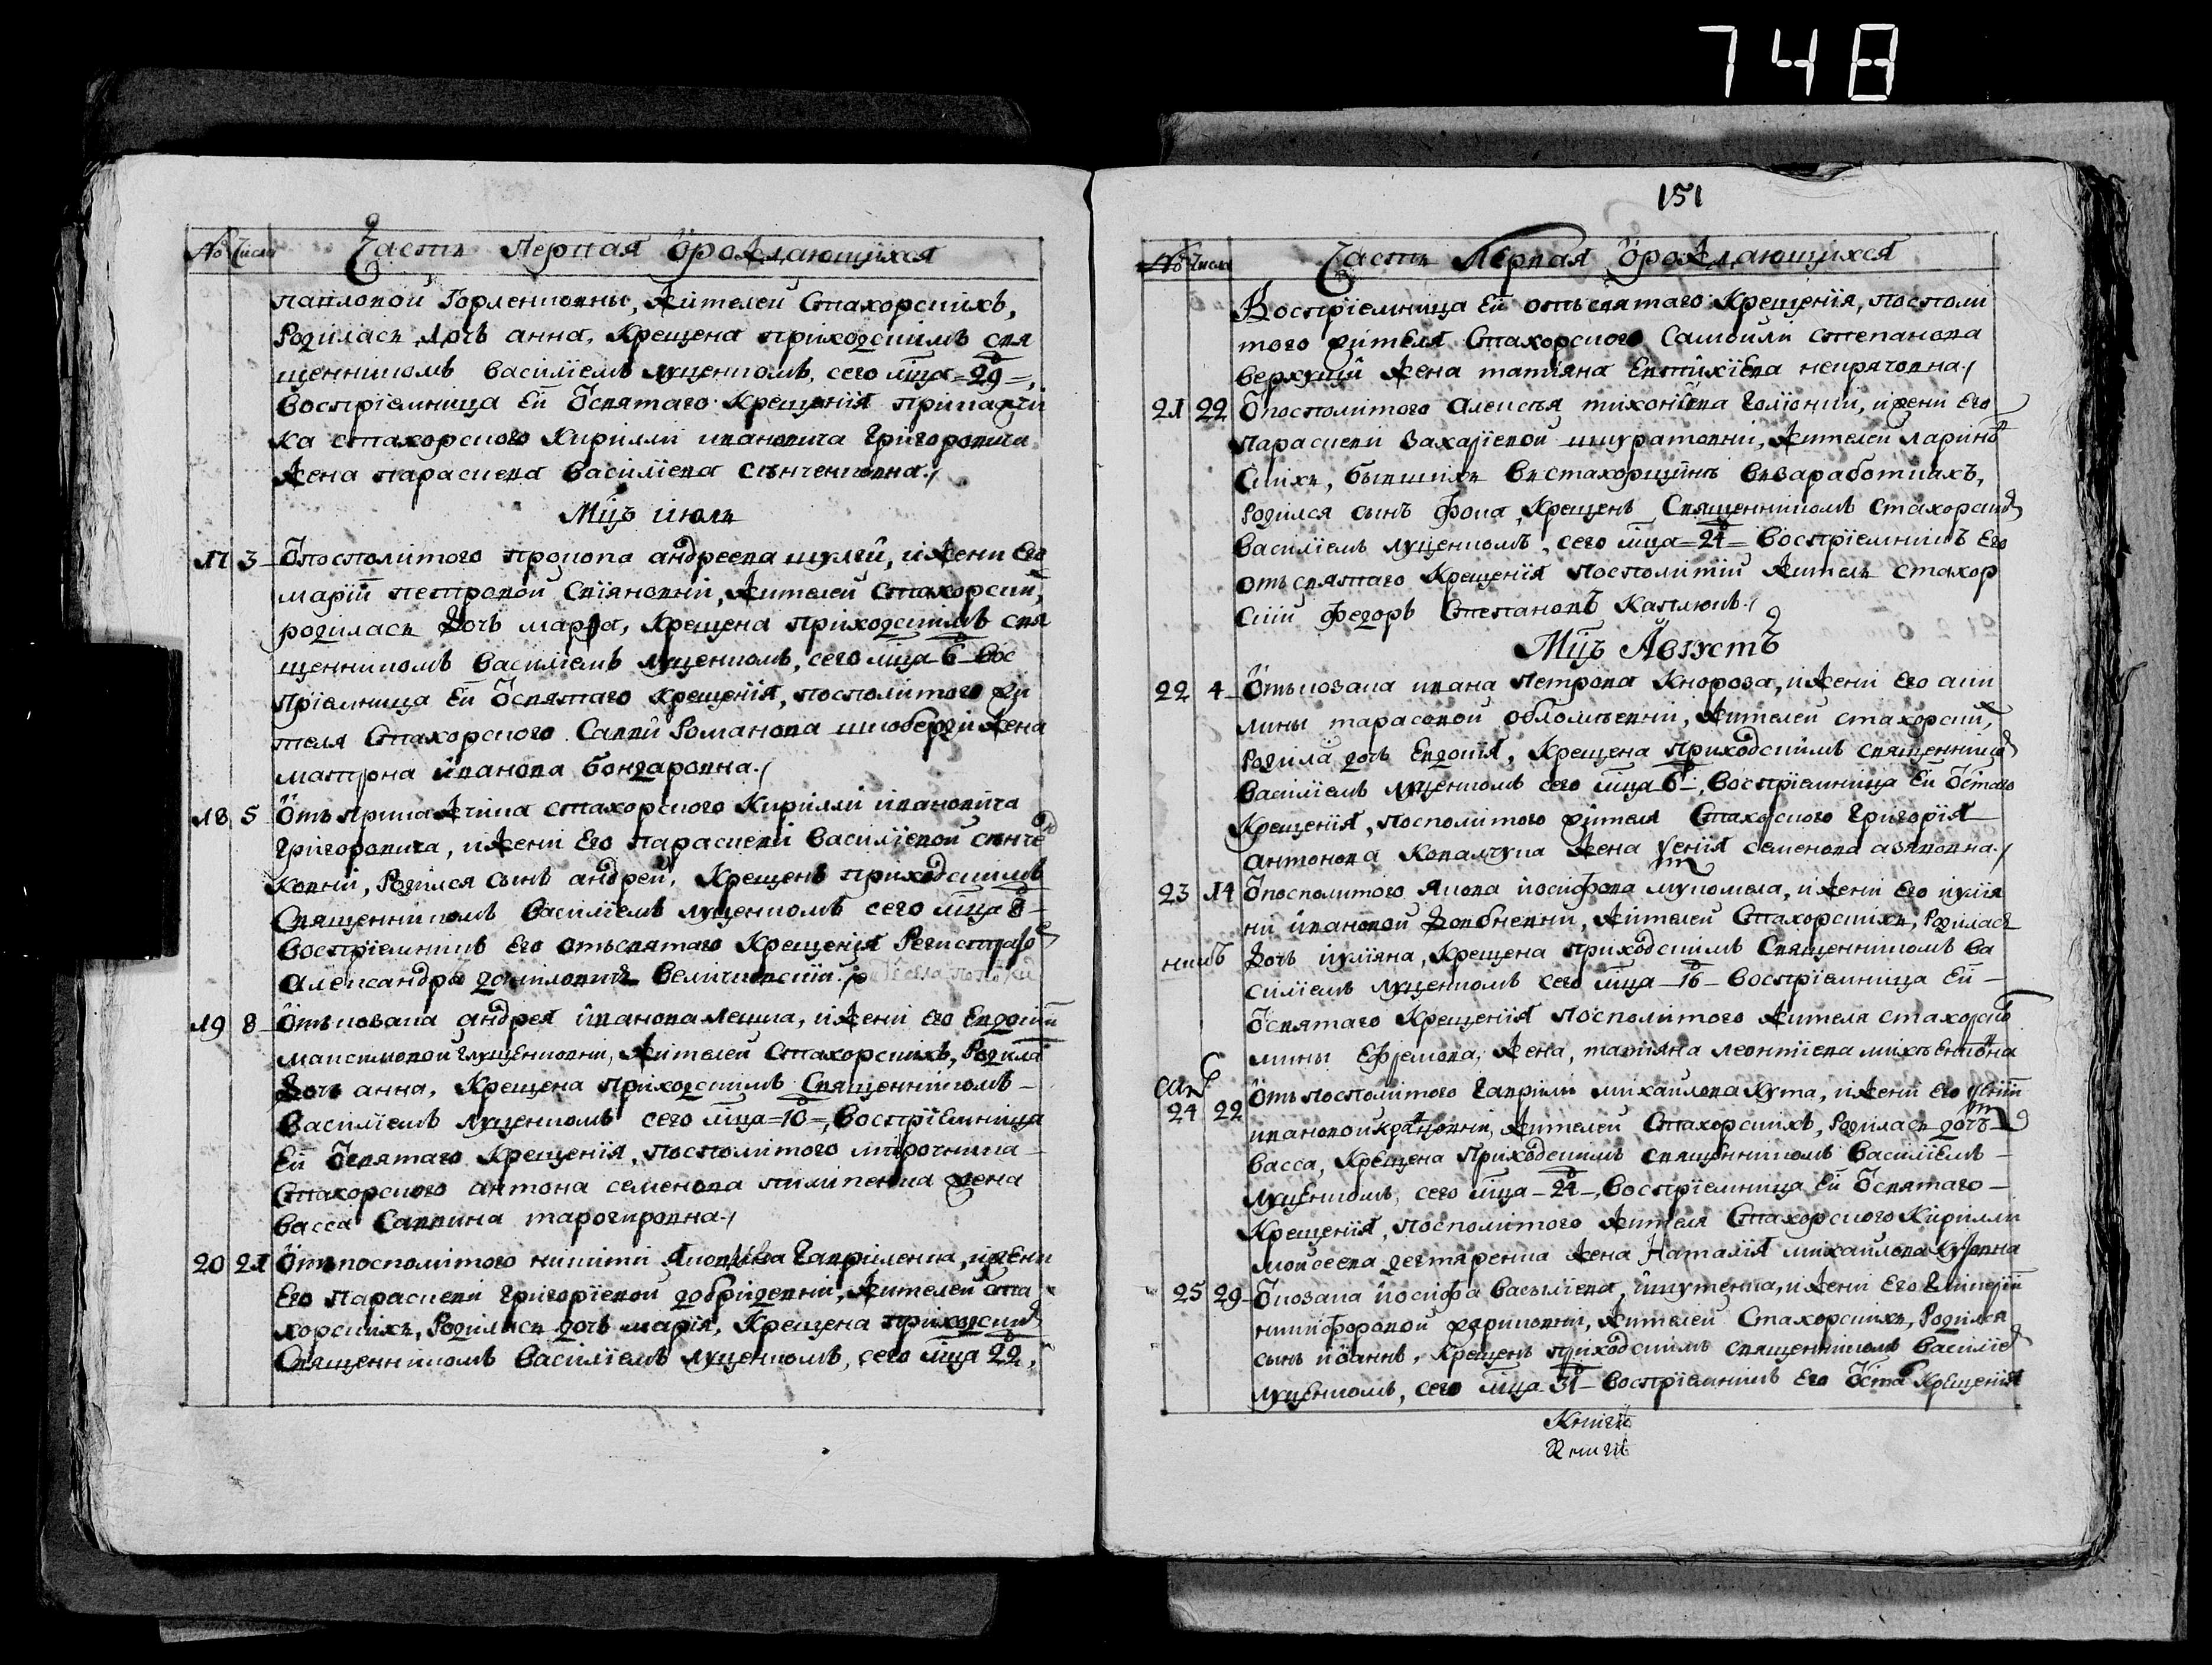 748
№ Числа Часть Первая ѡрождающихся
павловой Горленковны, жителей Стахорскихъ,
Родилась дочь анна, Крещена приходскимъ свя
щенникомъ василіемъ луценкомъ, сего мца 29,
воспріемница Ей ѿсвятаго Крещенія
ка стахорского Кирилли ивановича Григоровича
жена параскева василіева сѣнченковна
Мцъ июль
17 3 ѿпосполитого прокопа андреева шулги, ижени Его
марій петровой Сиїяновній, жителей Стахорских,
родилась дочь марфа, Крещена приходскимъ свя
щенникомъ василіемъ луценкомъ, сего мца 6 вос
пріемница Ей ѿсвятаго крещенія, посполитого жи
теля Стахорского Савви Романова жена
матрона іванова бондаровна
18 5 ѿтъ стахорского Кирилли ивановича
григоровича, ижени Его параскеви василіевой сѣнче
ковній, Родился сынъ андрей, Крещенъ приходскимъ
Священникомъ василіемъ луценкомъ сего мца 8
воспріемникъ Его отьсвятаго Крещенія Регистраторъ
александръ даниловичъ величковскій
19 8 ѿтъковаля андрея іванова ленка, ижени Его Евдокіи
максимовой глущенковни, жителей Стахорскихъ, Родила
дочь анна, Крещена приходскимъ Священникомъ
василіемъ луценкомъ сего мца 10, воспріемница
Ей ѿсвятаго Крещенія, посполитого мирочника
Стахорского антона семенова пилипенка жена
васса Саввина
20 21 ѿтьпосполитого никити яковлева гавриленка, ижени
Его параскеви григоріевой добридевни, жителей ста
хорскихъ, Родилась дочь марія, Крещена приходским
Священникомъ василіемъ луценкомъ, сего мца 22,
151
№ Числа Часть Первая ѡрождающихся
Воспріемница Ей отьсвятаго Крещенія, посполи
того жителя Стахорского Самойли степанова
верхуши жена татіяна Евтихіева
21 22 ѿпосполитого алексѣя тихонова Голіонки, ижени Его
параскеви захаріевой шкуратовни, жителей ларино
скихъ, бывшихъ встахорщинѣ взаработкахъ,
родился сынъ фома, Крещенъ Священникомъ Стахорским
василіемъ луценкомъ, сего мца 24 воспріемникъ Его
отьсвятаго Крещенія посполитій житель стахор
скій федоръ Степановъ Каплюкъ
Мцъ Августъ
22 4 ѿтьковаля ивана петрова Кнороза, ижени Его аки
лины тарасовой обломѣевни, жителей стахорских,
родила дочь Евдокія, Крещена приходскимъ священником
василіемъ луценкомъ сего мца 6, воспріемница Ей ѿстаго
Крещенія, посполитого жителя Стахорского григорія
антонова Ковалчука жена ѯенія семенова
23 14 ѿпосполитого якова иосифова мукомела, ижени Его иулія
ни ивановой довбневни, жителей Стахорскихъ, Родилась
дочь иуліяна, Крещена приходскимъ Священникомъ ва
силіемъ луценкомъ сего мца 16 воспріемница Ей
ѿсвятаго Крещенія посполитого жителя стахорско
мины Ефремова, жена, татіяна леонтіева михѣенкона
24 22 ѿтьпосполитого гаврили михайлова кута, ижени Его
ивановой жителей Стахорскихъ, Родилась дочь
васса, Крещена приходскимъ священникомъ василіемъ
луценкомъ, сего мца 24, воспріемница Ей ѿсвятаго
Крещенія, посполитого жителя Стахорского Кирилли
моисеева дегтяренка жена Наталія михайлова Кутовна
25 29 ѿковаля иосифа василіева, ижени Его гликеріи
никифоровой жителей Стахорскихъ, Родился
сынъ иоаннъ, Крещенъ приходскимъ священникомъ василіем
луценкомъ, сего мца 31 воспріемникъ Его ѿстаго Крещенія
Книги